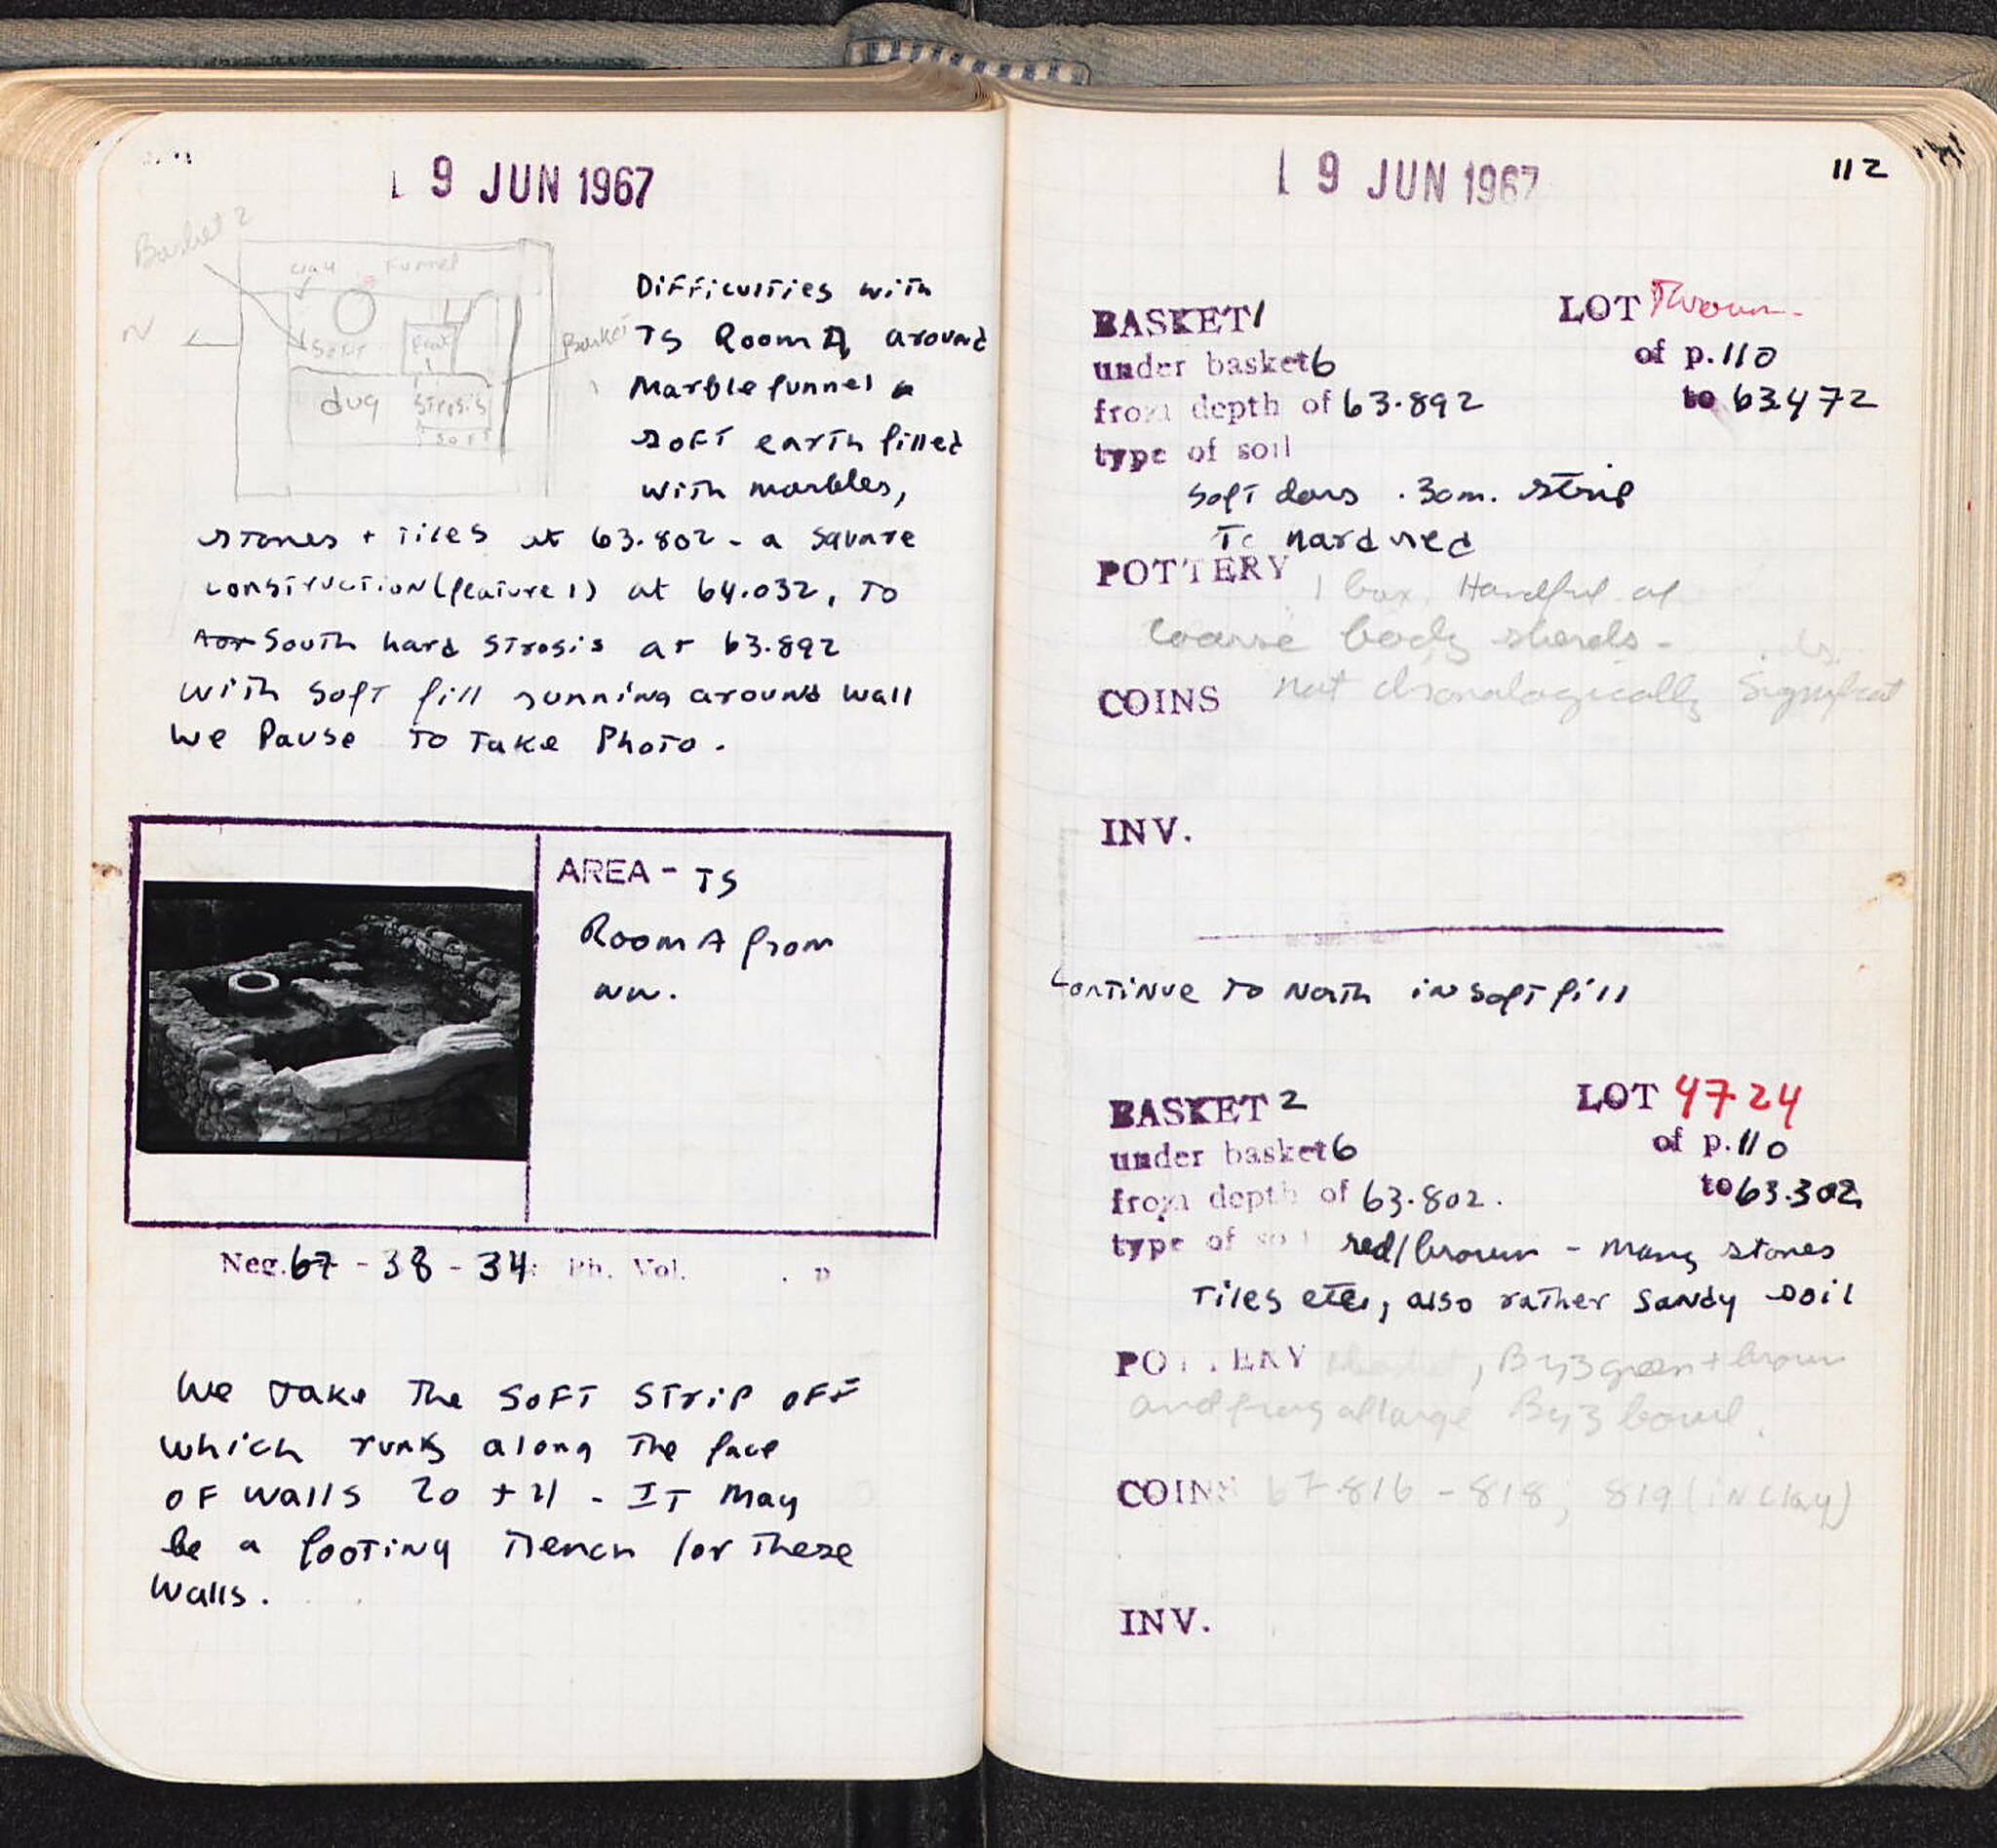 19 JUN 1967
Basket 2
clay funnel
N
soft
feat
1
Basket
1
dug
strosis
soft
Difficulties with
TS Room A, around
Marble funnel a
soft earth filled
with marbles,
stones + tiles at 63.802 - a square
construction (feature 1) at 64.032, to
South hard strosis at 63.892
with soft fill running around wall
We Pause to take Photo.
AREA - TS
Room A from
NW.
Neg. 67 - 38 - 34 Ph. Vol. . p
We take the soft strip off
which runs along the face
of walls 20 + 21 - It may
be a footing trench for these
walls.
19 JUN 1967
112
BASKET 1 LOT Thrown
under basket 6 of p. 110
from depth of 63.892 to 63.472
type of soil
soft .30m. strip
to hard red
POTTERY 1 box. Handful of
coarse body sherds -
not chronologically significant
COINS
INV.
Continue to North in soft fill
BASKET 2 LOT 4724
under basket 6 of p. 110
from depth of 63.802. to 63.302
type of soil red/brown - many stones
tiles etc., also rather sandy soil
POTTERY , Byz green + brown
and frag of large Byz bowl.
COINS 67-816 - 818, 819 (in clay)
INV.